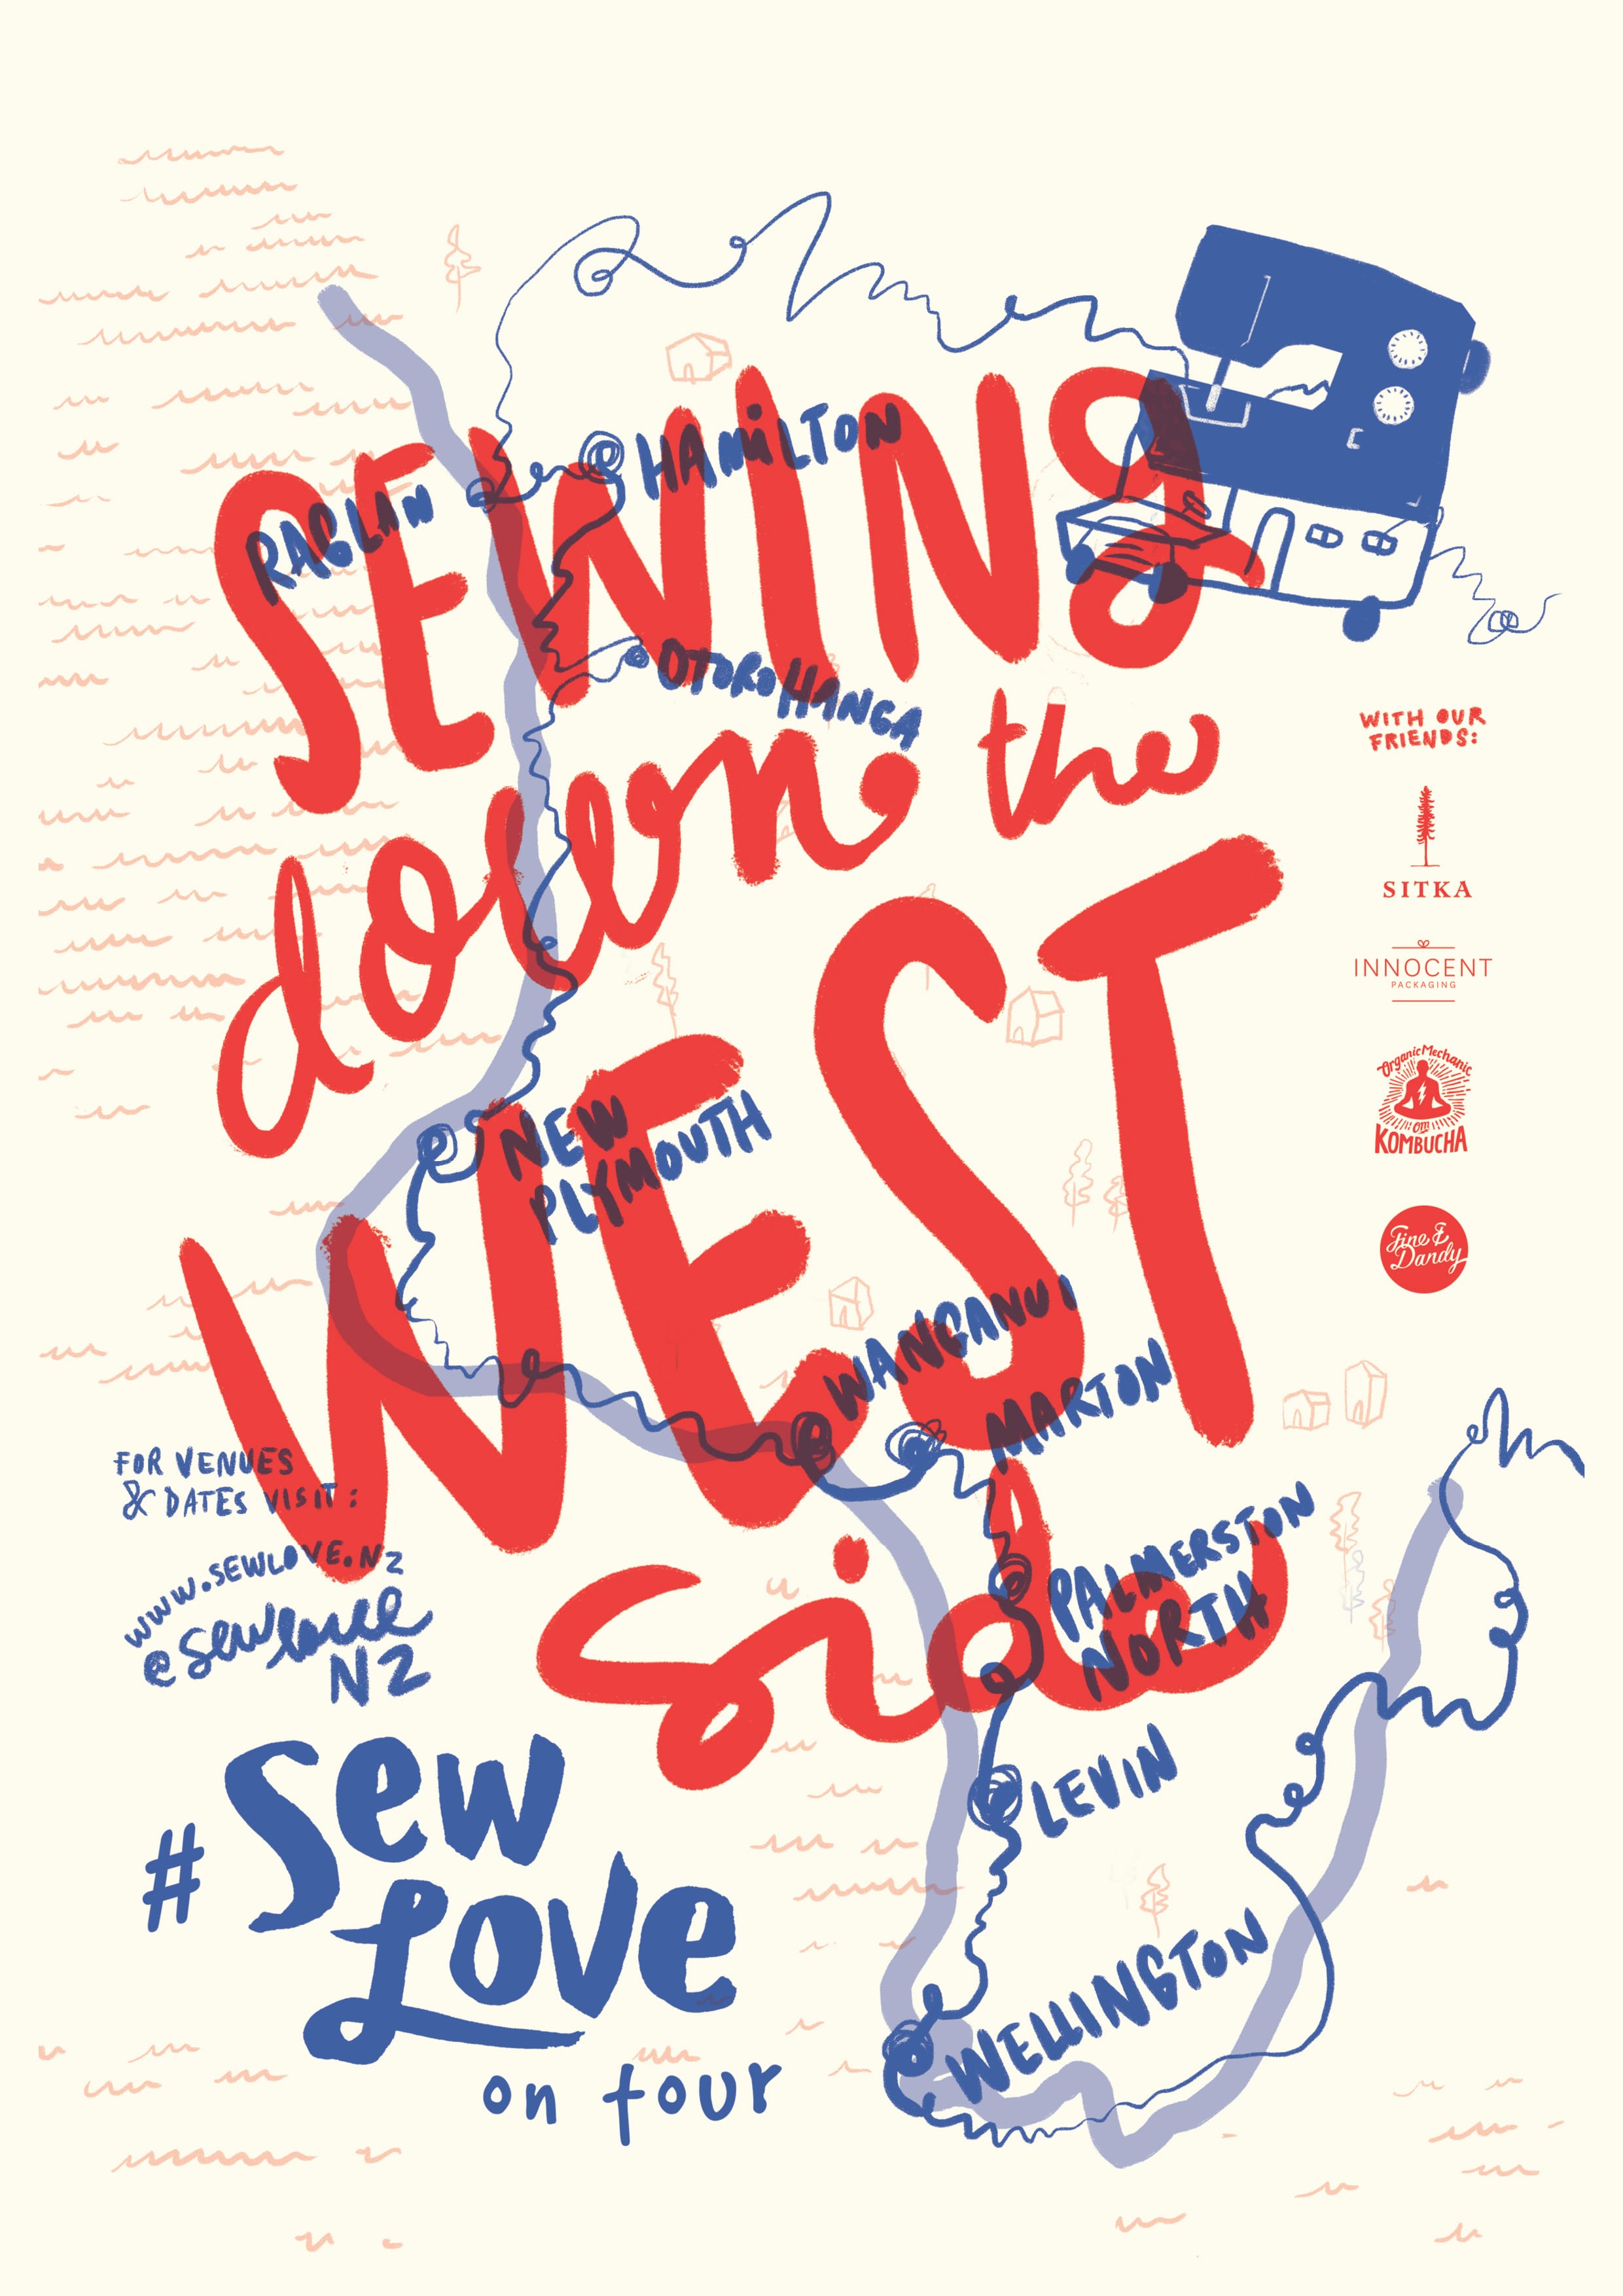 SEWING
down the
WEST
side
RAGLAN
HAMILTON
OTOROHANGA
NEW
PLYMOUTH
WANGANUI
MARTON
PALMERSTON
NORTH
LEVIN
WELLINGTON
WITH OUR
FRIENDS:
SITKA
INNOCENT
PACKAGING
Organic Mechanic
OM
KOMBUCHA
Fine &
Dandy
FOR VENUES
& DATES VISIT:
www.SEWLOVE.NZ
@sewlove
NZ
# Sew
Love
on tour